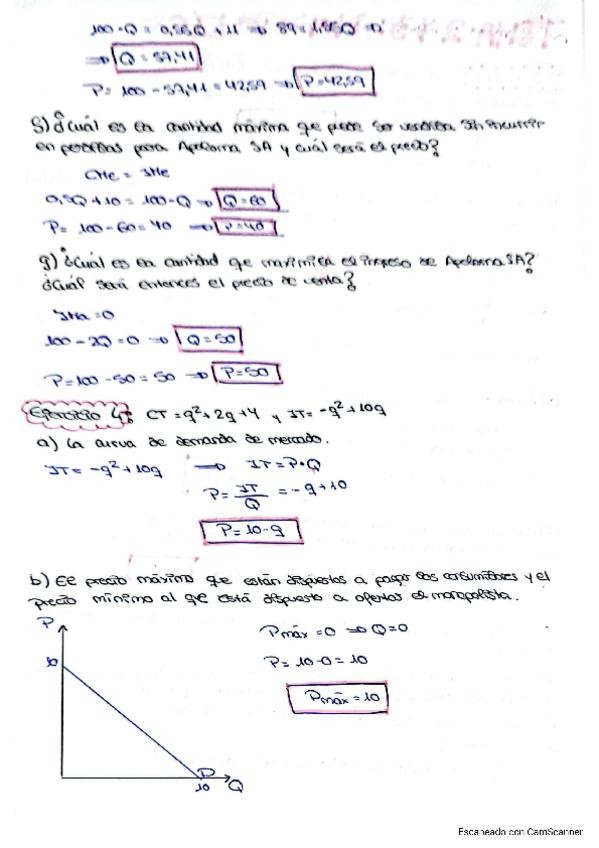 100-Q = 0,55Q + 11 => 89 = 1,55Q =>
=> Q = 57,41
P = 100 - 57,41 = 42,59 => P = 42,59
f) ¿Cuál es la cantidad máxima que puede ser vendida sin incurrir
en pérdidas para Apeloma SA y cuál será el precio?
CMe = IMe
0,5Q + 10 = 100 - Q => Q = 60
P = 100 - 60 = 40 => P = 40
g) ¿Cuál es la cantidad que maximiza el ingreso de Apeloma SA?
¿Cuál será entonces el precio de venta?
IMa = 0
100 - 2Q = 0 => Q = 50
P = 100 - 50 = 50 => P = 50
Ejercicio 4: CT = q²+2q+4 y IT = -q²+10q
a) La curva de demanda de mercado.
IT = -q²+10q => IT = P·Q
P = IT/Q = -q+10
P = 10-q
b) El precio máximo que están dispuestos a pagar los consumidores y el
precio mínimo al que está dispuesto a ofertar el monopolista.
P
Pmáx = 0 => Q = 0
10
P = 10-0 = 10
Pmáx = 10
D
10 Q
Escaneado con CamScanner